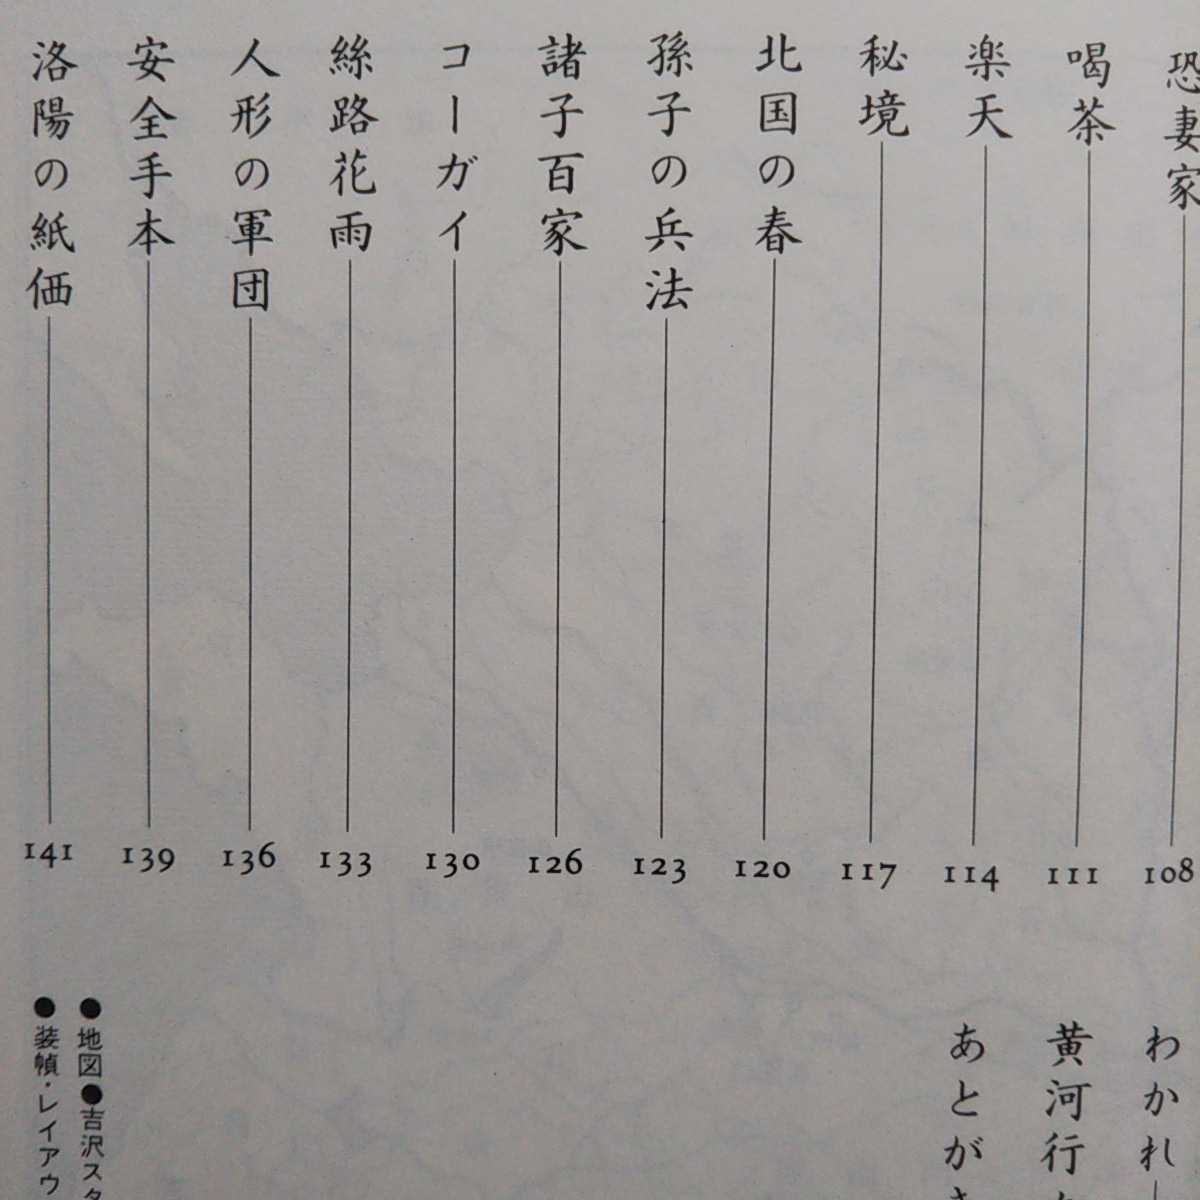 恐妻家 108
喝茶 111
楽天 114
秘境 117
北国の春 120
孫子の兵法 123
諸子百家 126
コーガイ 130
絲路花雨 133
人形の軍団 136
安全手本 139
洛陽の紙価 141
わかれ
黄河行
あとが
●地図●吉沢スタ
●装幀・レイアウ